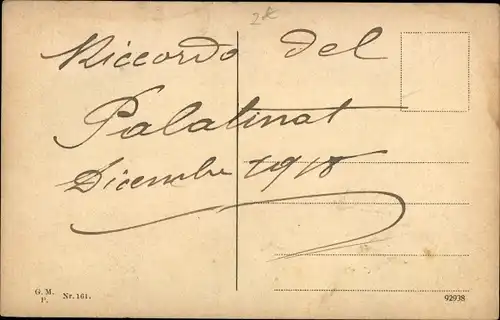 2€
Riccordo del
Palatinat
Dicembre 1918
G. M.
P.
Nr. 161.
92938